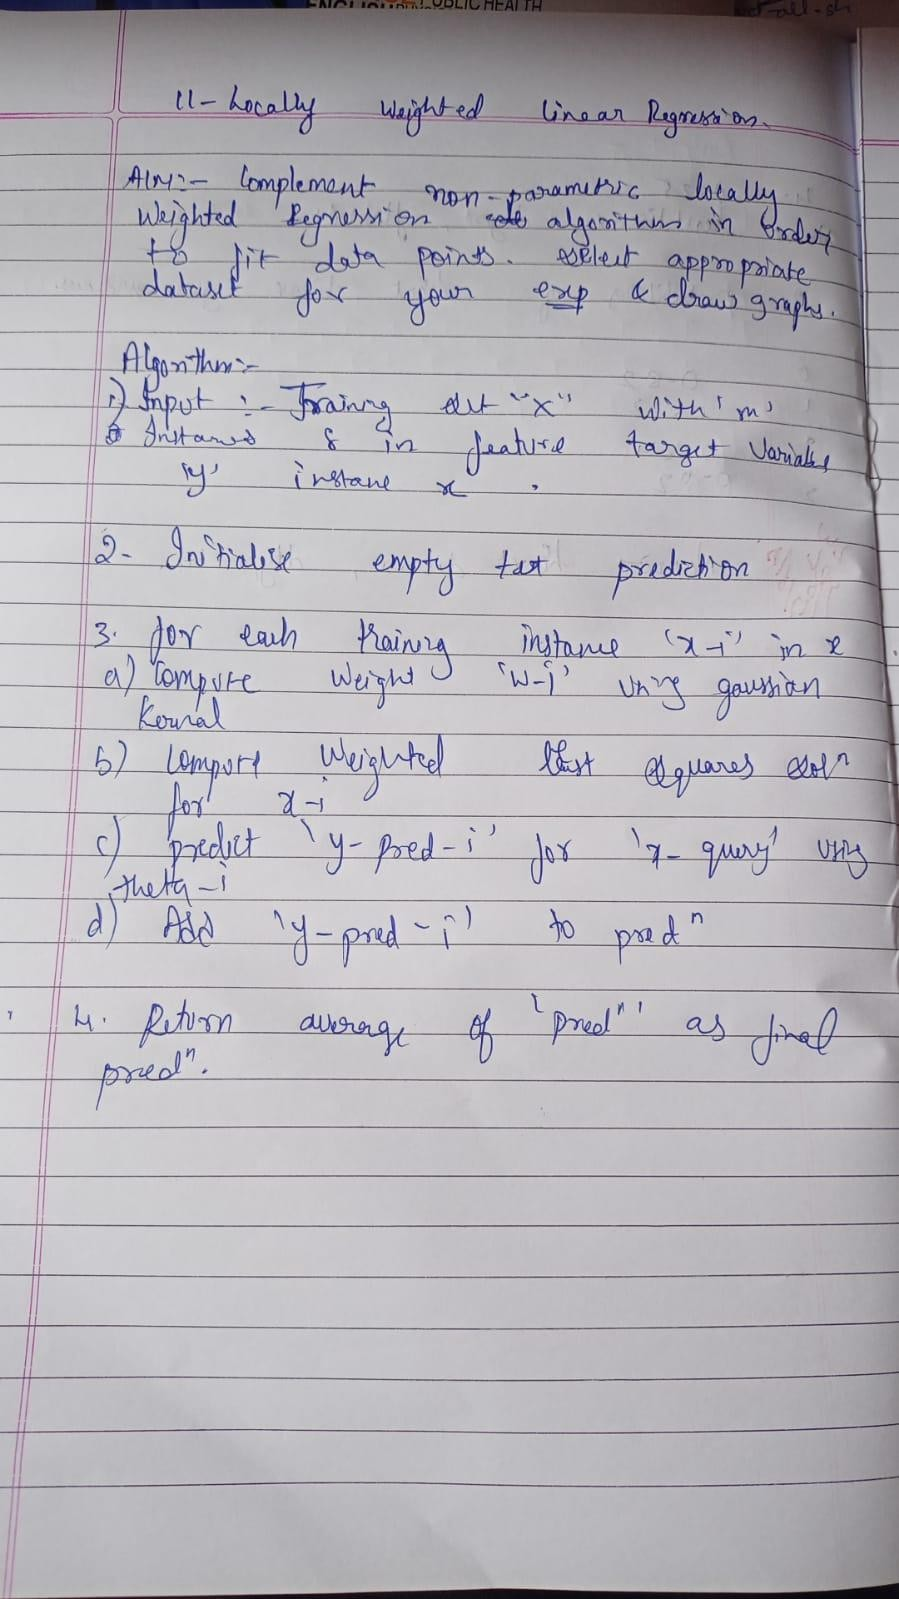 PUBLIC HEALTH
11- Locally Weighted linear Regression.
AIM:- Complement non-parametric locally
Weighted Regression algorithm in order
to fit data points. select appropriate
dataset for your exp & draw graphs.
Algorithm:-
1) Input :- Training set "X" with 'm'
Instances & 'n' feature target Variable
'y' instance x .
2- Initialise empty prediction
3. for each training instance 'x-i' in x
a) Compute Weight 'w-i' using gaussian
Kernal
b) Compute Weighted least squares solⁿ
for x-i
c) predict 'y-pred-i' for 'x-query' using
theta-i
d) Add 'y-pred-i' to predⁿ
4. Return average of 'predⁿ' as final
predⁿ.